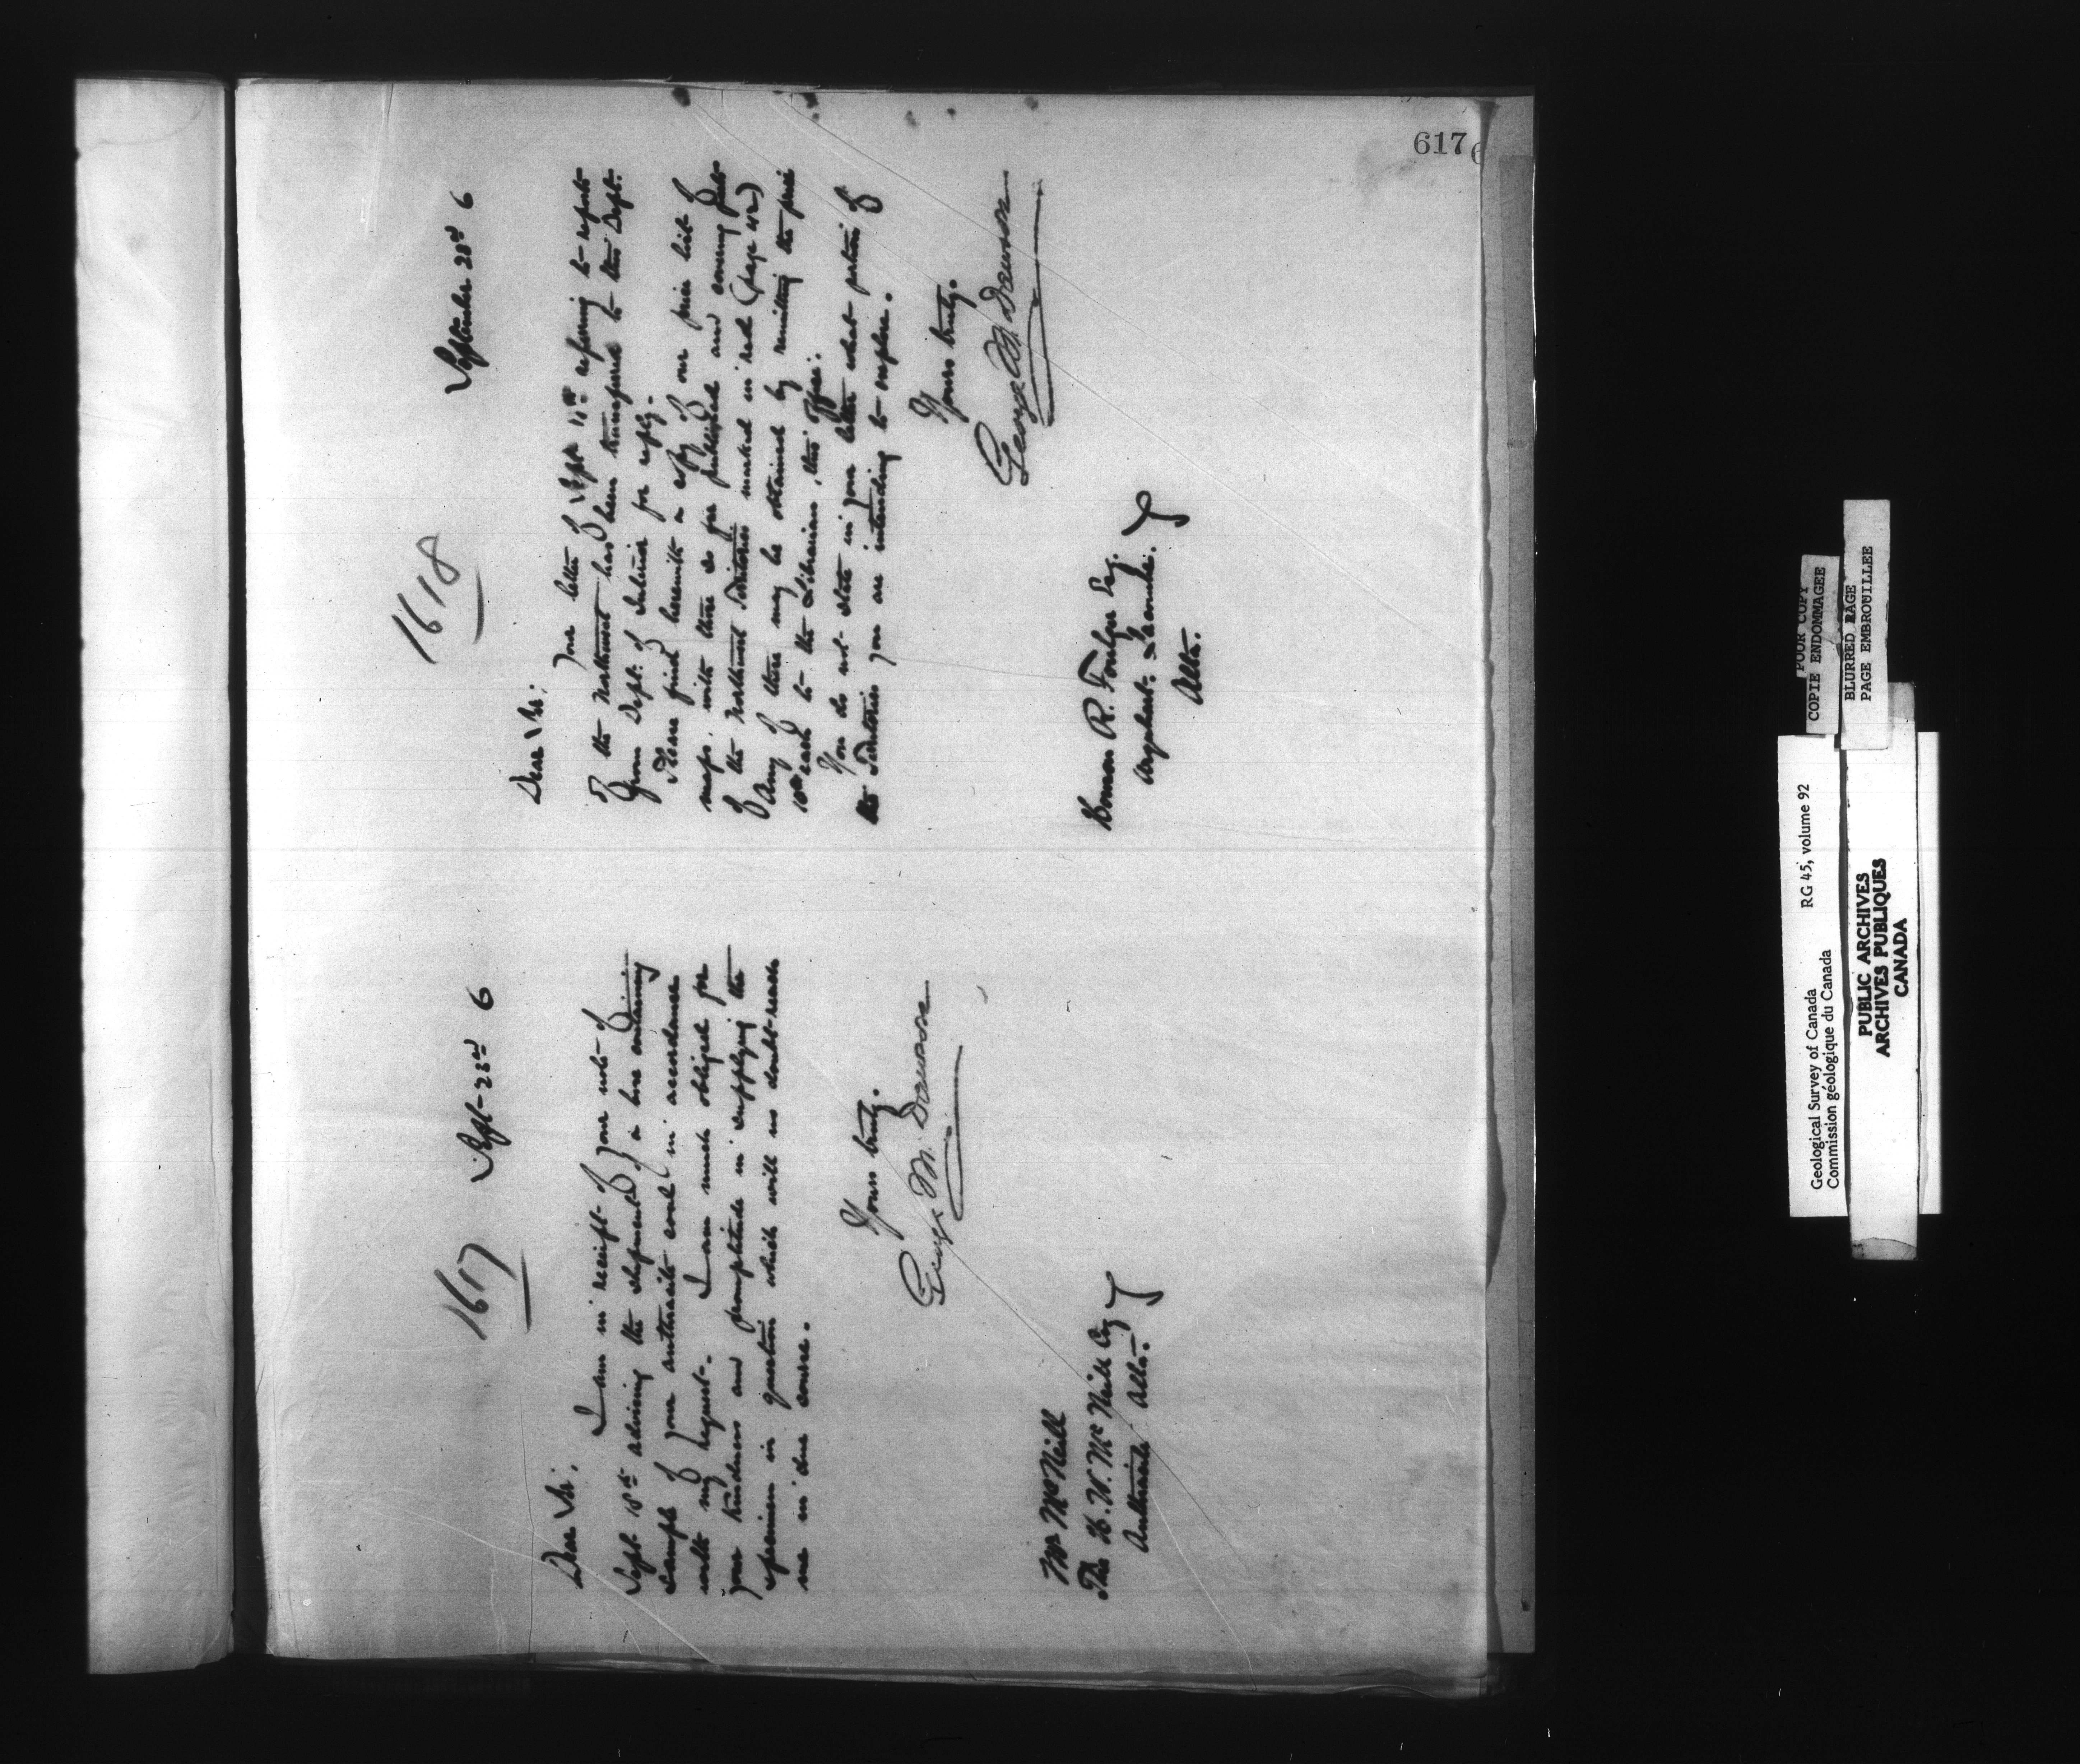 617
1617
Sept- 23rd 6
Dear Sir,
I am in receipt of your note of
Sept. 18th advising the shipment of a box containing
sample of your anthracite coal in accordance
with my request. I am much obliged for
your kindness and promptitude in supplying the
specimen in question which will no doubt reach
me in due course.
Yours truly.
George M. Dawson
Mr McNeill
The H. W. McNeill Coy
Anthracite Alta.
1618
September 23rd 6
Dear Sir,
Your letter of Sept 11th referring to reports
of the Northwest has been transferred to this Dept.
from Dept. of Interior for reply.
Please find herewith a copy of our price list of
maps, with those so far published and covering parts
of the Northwest Territories marked in red (page 42)
Any of these may be obtained by remitting the price
10cts each to the Librarian, this office.
You do not state in your letter what portion of
the Territories you are intending to explore.
Yours truly.
George M. Dawson
R. Esq.
Lacombe.
Alta.
POOR COPY
COPIE ENDOMMAGEE
BLURRED PAGE
PAGE EMBROUILLEE
Geological Survey of Canada RG 45, volume 92
Commission géologique du Canada
PUBLIC ARCHIVES
ARCHIVES PUBLIQUES
CANADA